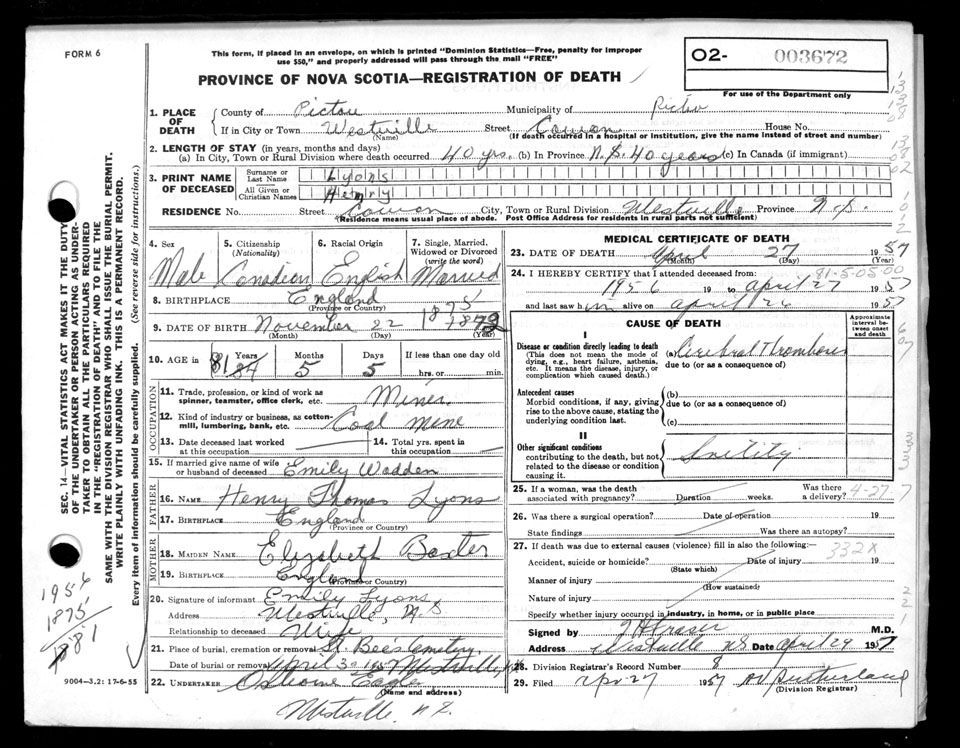 FORM 6
This form, if placed in an envelope, on which is printed "Dominion Statistics—Free, penalty for improper
use $50," and properly addressed will pass through the mail "FREE"
PROVINCE OF NOVA SCOTIA—REGISTRATION OF DEATH
O2- 003672
For use of the Department only
1. PLACE OF DEATH
County of Pictou Municipality of Pictou
If in City or Town Westville Street Cowan House No.
(Name) (If death occurred in a hospital or institution, give the name instead of street and number)
2. LENGTH OF STAY (in years, months and days)
(a) In City, Town or Rural Division where death occurred 40 yrs. (b) In Province N.S. 40 years (c) In Canada (if immigrant)
3. PRINT NAME OF DECEASED
Surname or Last Name Lyons
All Given or Christian Names Henry
RESIDENCE No. Street Cowan City, Town or Rural Division Westville Province N.S.
(Residence means usual place of abode. Post Office Address for residents in rural parts not sufficient)
4. Sex 5. Citizenship (Nationality) 6. Racial Origin 7. Single, Married, Widowed or Divorced (write the word)
Male Canadian English Married
8. BIRTHPLACE England
(Province or Country)
9. DATE OF BIRTH November 22 1875
(Month) (Day) (Year)
10. AGE in 81 Years Months 5 Days 5 If less than one day old
hrs. or min.
OCCUPATION
11. Trade, profession, or kind of work as spinner, teamster, office clerk, etc. Miner
12. Kind of industry or business, as cotton-mill, lumbering, bank, etc. Coal mine
13. Date deceased last worked at this occupation 14. Total yrs. spent in this occupation
15. If married give name of wife or husband of deceased Emily Wadden
FATHER
16. NAME Henry Thomas Lyons
17. BIRTHPLACE England
(Province or Country)
MOTHER
18. MAIDEN NAME Elizabeth Baxter
19. BIRTHPLACE England
(Province or Country)
20. Signature of informant Emily Lyons
Address Westville, N S
Relationship to deceased Wife
21. Place of burial, cremation or removal St. Bees Cemetery,
Date of burial or removal April 30 1957 Westville,
22. UNDERTAKER Osborne Eagles
(Name and address)
Westville, N.S.
MEDICAL CERTIFICATE OF DEATH
23. DATE OF DEATH April 27 1957
(Month) (Day) (Year)
81-5-05.00
24. I HEREBY CERTIFY that I attended deceased from:
1956 19 to April 27 1957
and last saw him alive on April 26 1957
CAUSE OF DEATH
Approximate interval between onset and death
I
Disease or condition directly leading to death
(This does not mean the mode of dying, e.g., heart failure, asthenia, etc. It means the disease, injury, or complication which caused death.)
(a) Cerebral Thrombosis
due to (or as a consequence of)
Antecedent causes
Morbid conditions, if any, giving rise to the above cause, stating the underlying condition last.
(b)
due to (or as a consequence of)
(c)
II
Other significant conditions
contributing to the death, but not related to the disease or condition causing it.
25. If a woman, was the death associated with pregnancy? Duration weeks. Was there a delivery? 4-27-7
26. Was there a surgical operation? Date of operation 19
State findings Was there an autopsy?
27. If death was due to external causes (violence) fill in also the following:— 332X
Accident, suicide or homicide? Date of injury 19
(State which)
Manner of injury
(How sustained)
Nature of injury
Specify whether injury occurred in industry, in home, or in public place
Signed by J H Fraser M.D.
Address Westville N.S. Date April 29 1957
28. Division Registrar's Record Number 8
29. Filed Apr-27 1957 Sutherland
(Division Registrar)
SEC. 14—VITAL STATISTICS ACT MAKES IT THE DUTY
OF THE UNDERTAKER OR PERSON ACTING AS UNDER-
TAKER TO OBTAIN ALL THE PARTICULARS REQUIRED
IN THE "REGISTRATION OF DEATH" AND TO FILE THE
SAME WITH THE DIVISION REGISTRAR WHO SHALL ISSUE THE BURIAL PERMIT.
WRITE PLAINLY WITH UNFADING INK. THIS IS A PERMANENT RECORD.
Every item of information should be carefully supplied. (See reverse side for instructions.)
1956
1875
81
9004—3.2: 17-6-55